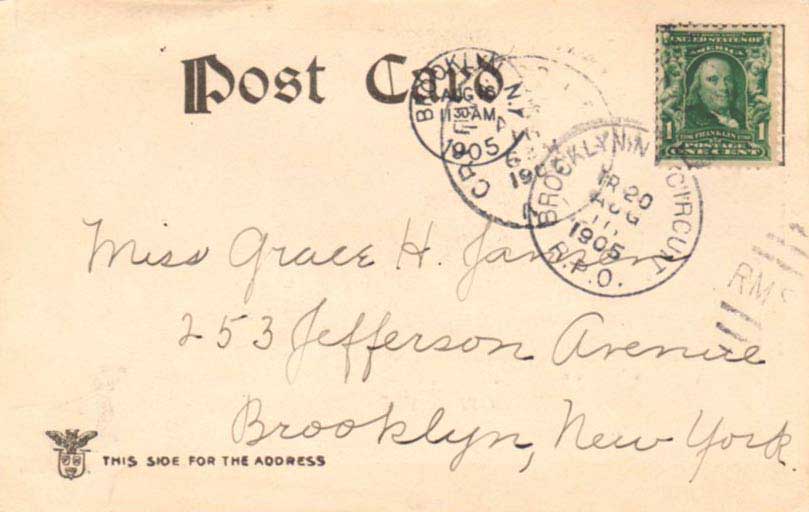 Post Card
BROOKLYN N.Y.
AUG 16
11 30 AM
1905
UNITED STATES OF
AMERICA
1 FRANKLIN 1
POSTAGE
ONE CENT
BROOKLYN, N
CIRCUIT
TR 20
AUG
1905
R.P.O.
RMS
Miss Grace H.
253 Jefferson Avenue
Brooklyn, New York.
THIS SIDE FOR THE ADDRESS